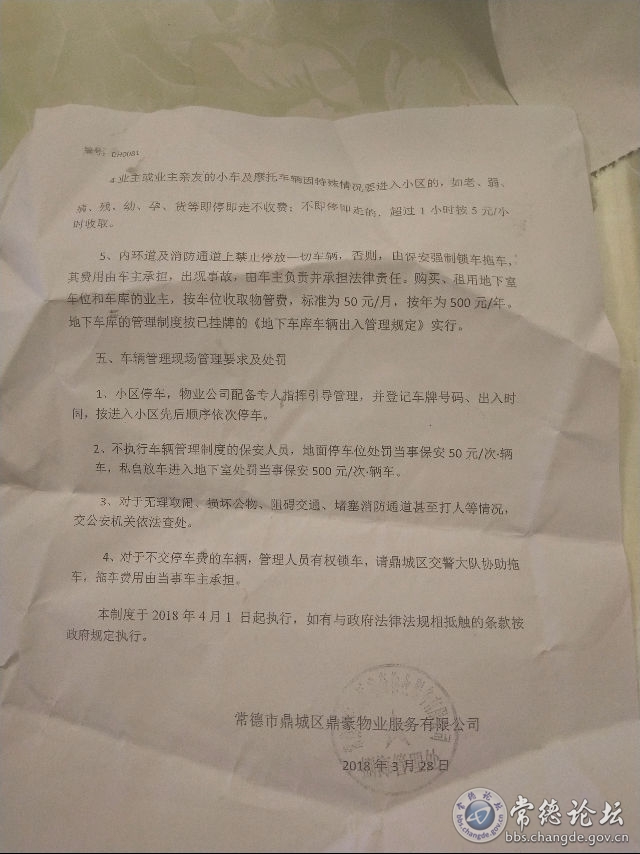 编号：DH0081
4 业主或业主亲友的小车及摩托车辆因特殊情况要进入小区的，如老、弱、
病、残、幼、孕、货等即停即走不收费；不即停即走的，超过 1 小时按 5 元/小
时收取。
5、内环道及消防通道上禁止停放一切车辆，否则，由保安强制锁车拖车，
其费用由车主承担，出现事故，由车主负责并承担法律责任。购买、租用地下室
车位和车库的业主，按车位收取物管费，标准为 50 元/月，按年为 500 元/年。
地下车库的管理制度按已挂牌的《地下车库车辆出入管理规定》实行。
五、车辆管理现场管理要求及处罚
1、小区停车，物业公司配备专人指挥引导管理，并登记车牌号码、出入时
间，按进入小区先后顺序依次停车。
2、不执行车辆管理制度的保安人员，地面停车位处罚当事保安 50 元/次·辆
车，私自放车进入地下室处罚当事保安 500 元/次·辆车。
3、对于无理取闹、损坏公物、阻碍交通、堵塞消防通道甚至打人等情况，
交公安机关依法查处。
4、对于不交停车费的车辆，管理人员有权锁车，请鼎城区交警大队协助拖
车，拖车费用由当事车主承担。
本制度于 2018 年 4 月 1 日起执行，如有与政府法律法规相抵触的条款按
政府规定执行。
常德市鼎城区鼎豪物业服务有限公司
2018 年 3 月 28 日
管理处
常德论坛
bbs.changde.gov.cn